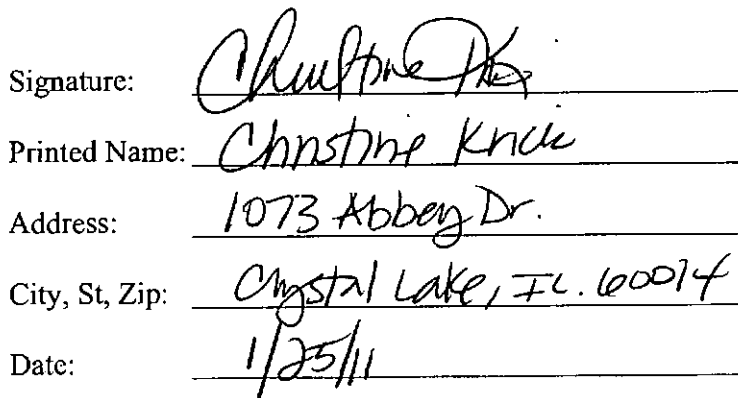 Signature: Christine
Printed Name: Christine Krick
Address: 1073 Abbey Dr.
City, St, Zip: Crystal Lake, IL. 60014
Date: 1/25/11